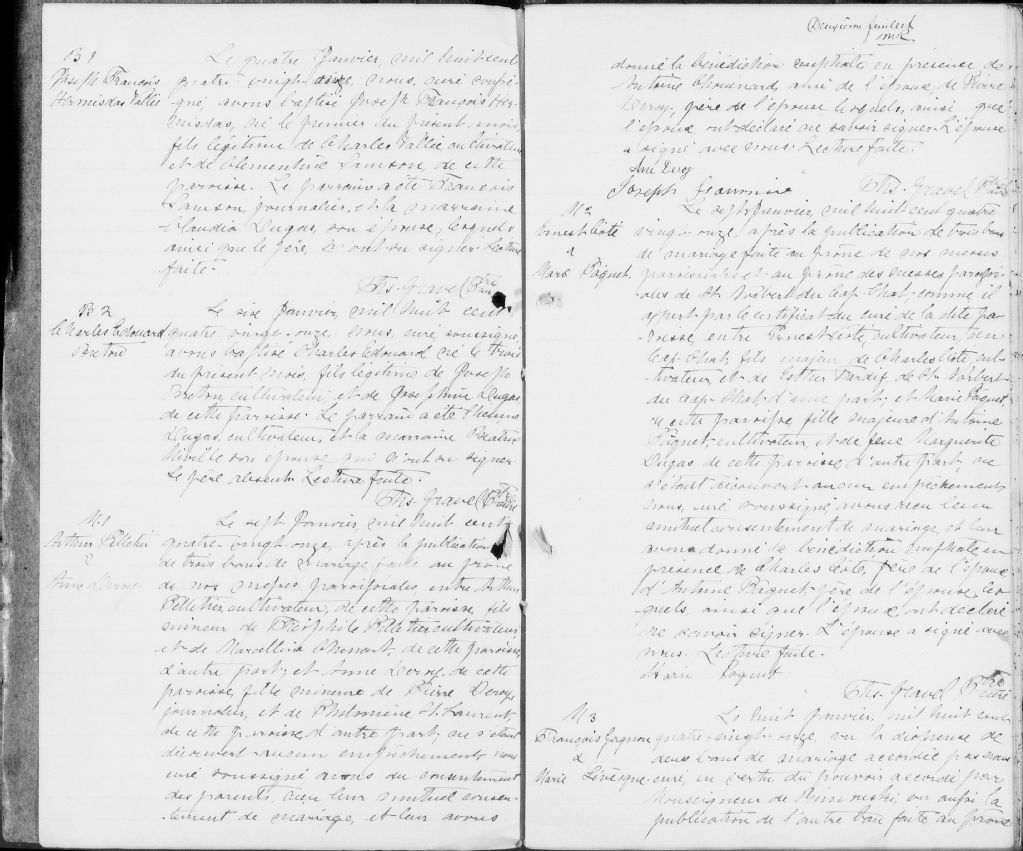 B 1
Joseph François
Hermisdas Vallée
Le quatre Janvier, mil huit cent
quatre vingt onze, nous, curé soussi-
gné, avons baptisé Joseph François Her-
misdas, né le premier du présent mois,
fils légitime de Charles Vallée cultivateur
et de Clementine Samson, de cette
paroisse. Le parrain a été François
Samson, journalier, et la marraine
Claudia Dugas, son épouse, lesquels
ainsi que le père, n'ont su signer. Lecture
faite.
Ths. Gravel Ptre
B 2
Charles Edouard
Breton
Le six Janvier, mil huit cent
quatre vingt-onze, nous, curé soussigné,
avons baptisé Charles Edouard né le trois
du présent mois, fils légitime de Joseph
Breton, cultivateur, et de Josephine Dugas
de cette paroisse. Le parrain a été
Dugas, cultivateur, et la marraine
son épouse qui n'ont su signer.
Le père absent. Lecture faite.
Ths. Gravel Ptre
M. 1
Arthur Pelletier
&
Anne Deroy
Le sept Janvier, mil huit cent
quatre-vingt-onze, après la publication
de trois bans de mariage faite au prône
de nos messes paroissiales entre Arthur
Pelletier, cultivateur, de cette paroisse, fils
mineur de Théophile Pelletier, cultivateur
et de Marcelline Chenart, de cette paroisse,
d'autre part; et Anne Deroy, de cette
paroisse, fille mineure de Pierre Deroy,
journalier, et de Philomène St. Laurent,
de cette paroisse, d'autre part; ne s'étant
découvert aucun empêchement, nous
curé soussigné avons du consentement
des parents, reçu leur mutuel consen-
tement de mariage, et leur avons
Deuxième feuillet
donné la bénédiction nuptiale en présence de
Antoine Chouinard, ami de l'époux, de Pierre
Deroy, père de l'épouse lesquels, ainsi que
l'époux ont déclaré ne savoir signer. L'épouse
a signé avec nous. Lecture faite.
Anne Deroy
Joseph
Ths. Gravel Ptre
M. 2
Ernest Côté
&
Marie Paquet
Le sept Janvier, mil huit cent quatre
vingt-onze, après la publication de trois bans
de mariage faite au prône de nos messes
paroissiales et au prône des messes paroissi-
ales de St. Norbert du Cap-Chat, comme il
appert par le certificat du curé de la dite pa-
roisse, entre Ernest Côté, cultivateur, du
Cap Chat, fils majeur de Charles Côté, cul-
tivateur, et de Esther Tardif, de St. Norbert
du Cap-Chat d'une part; et Marie Paquet,
de cette paroisse, fille majeure d'Antoine
Paquet, cultivateur, et de feue Marguerite
Dugas, de cette paroisse d'autre part; ne
s'étant découvert aucun empêchement,
nous, curé, soussigné avons reçu leur
mutuel consentement de mariage, et leur
avons donné la bénédiction nuptiale en
présence de Charles Côté, père de l'époux,
d'Antoine Paquet père de l'épouse, les-
quels, ainsi que l'époux, ont déclaré
ne savoir signer. L'épouse a signé avec
nous. Lecture faite.
Marie Paquet
Ths. Gravel Ptre
M. 3
François Gagnon
&
Marie Lévesque
Le huit Janvier, mil huit cent
quatre-vingt-onze, vu la dispense de
deux bans de mariage accordée par nous
curé, en vertu du pouvoir accordé par
Monseigneur de Rimouski, vu aussi la
publication de l'autre ban faite au prône